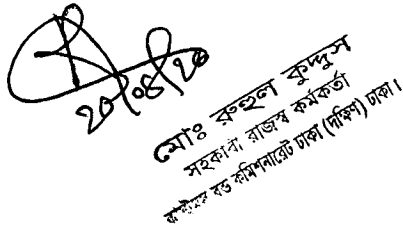 ২০/০৪/২০
মোঃ রুহুল কুদ্দুস
সহকারী রাজস্ব কর্মকর্তা
কাস্টমস বন্ড কমিশনারেট ঢাকা (দক্ষিণ) ঢাকা।